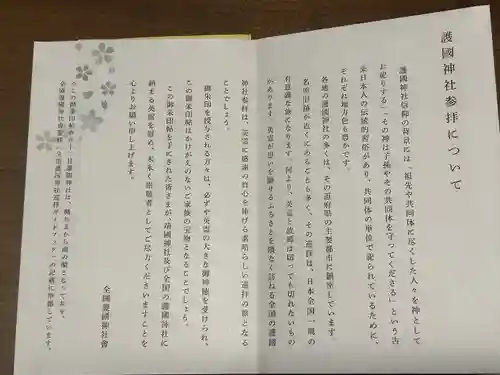 護國神社参拝について
護國神社信仰の背景には、「祖先や共同体に尽くした人々を神として
お祀りする」「その神は子孫やその共同体を守ってくださる」という古
来日本人の伝統的習俗があり、共同体の単位で祀られているために、
それぞれ地方色も豊かです。
各地の護國神社の多くは、その道府県の主要都市に鎮座しています。
名所旧跡が近くにあることも多く、その巡拝は、日本全国一周の
有意義な旅になります。何より、英霊と故郷は切っても切れないもの
があります。英霊が思いを馳せるふるさとを隈なく訪ねる全国の護國
神社参拝は、英霊に感謝の真心を捧げる素晴らしい巡拝の旅となる
ことでしょう。
御朱印を授与される方々は、必ずや英霊の大きな御神徳を受けられ、
この御朱印帖はかけがえのないご家族の宝物となることでしょう。
この御朱印帖を手にされた皆さまが、靖國神社及び全国の護國神社に
鎮まる英霊を慰め、末永く崇敬者としてご尽力くださいますことを
心よりお願い申し上げます。
全國護國神社會